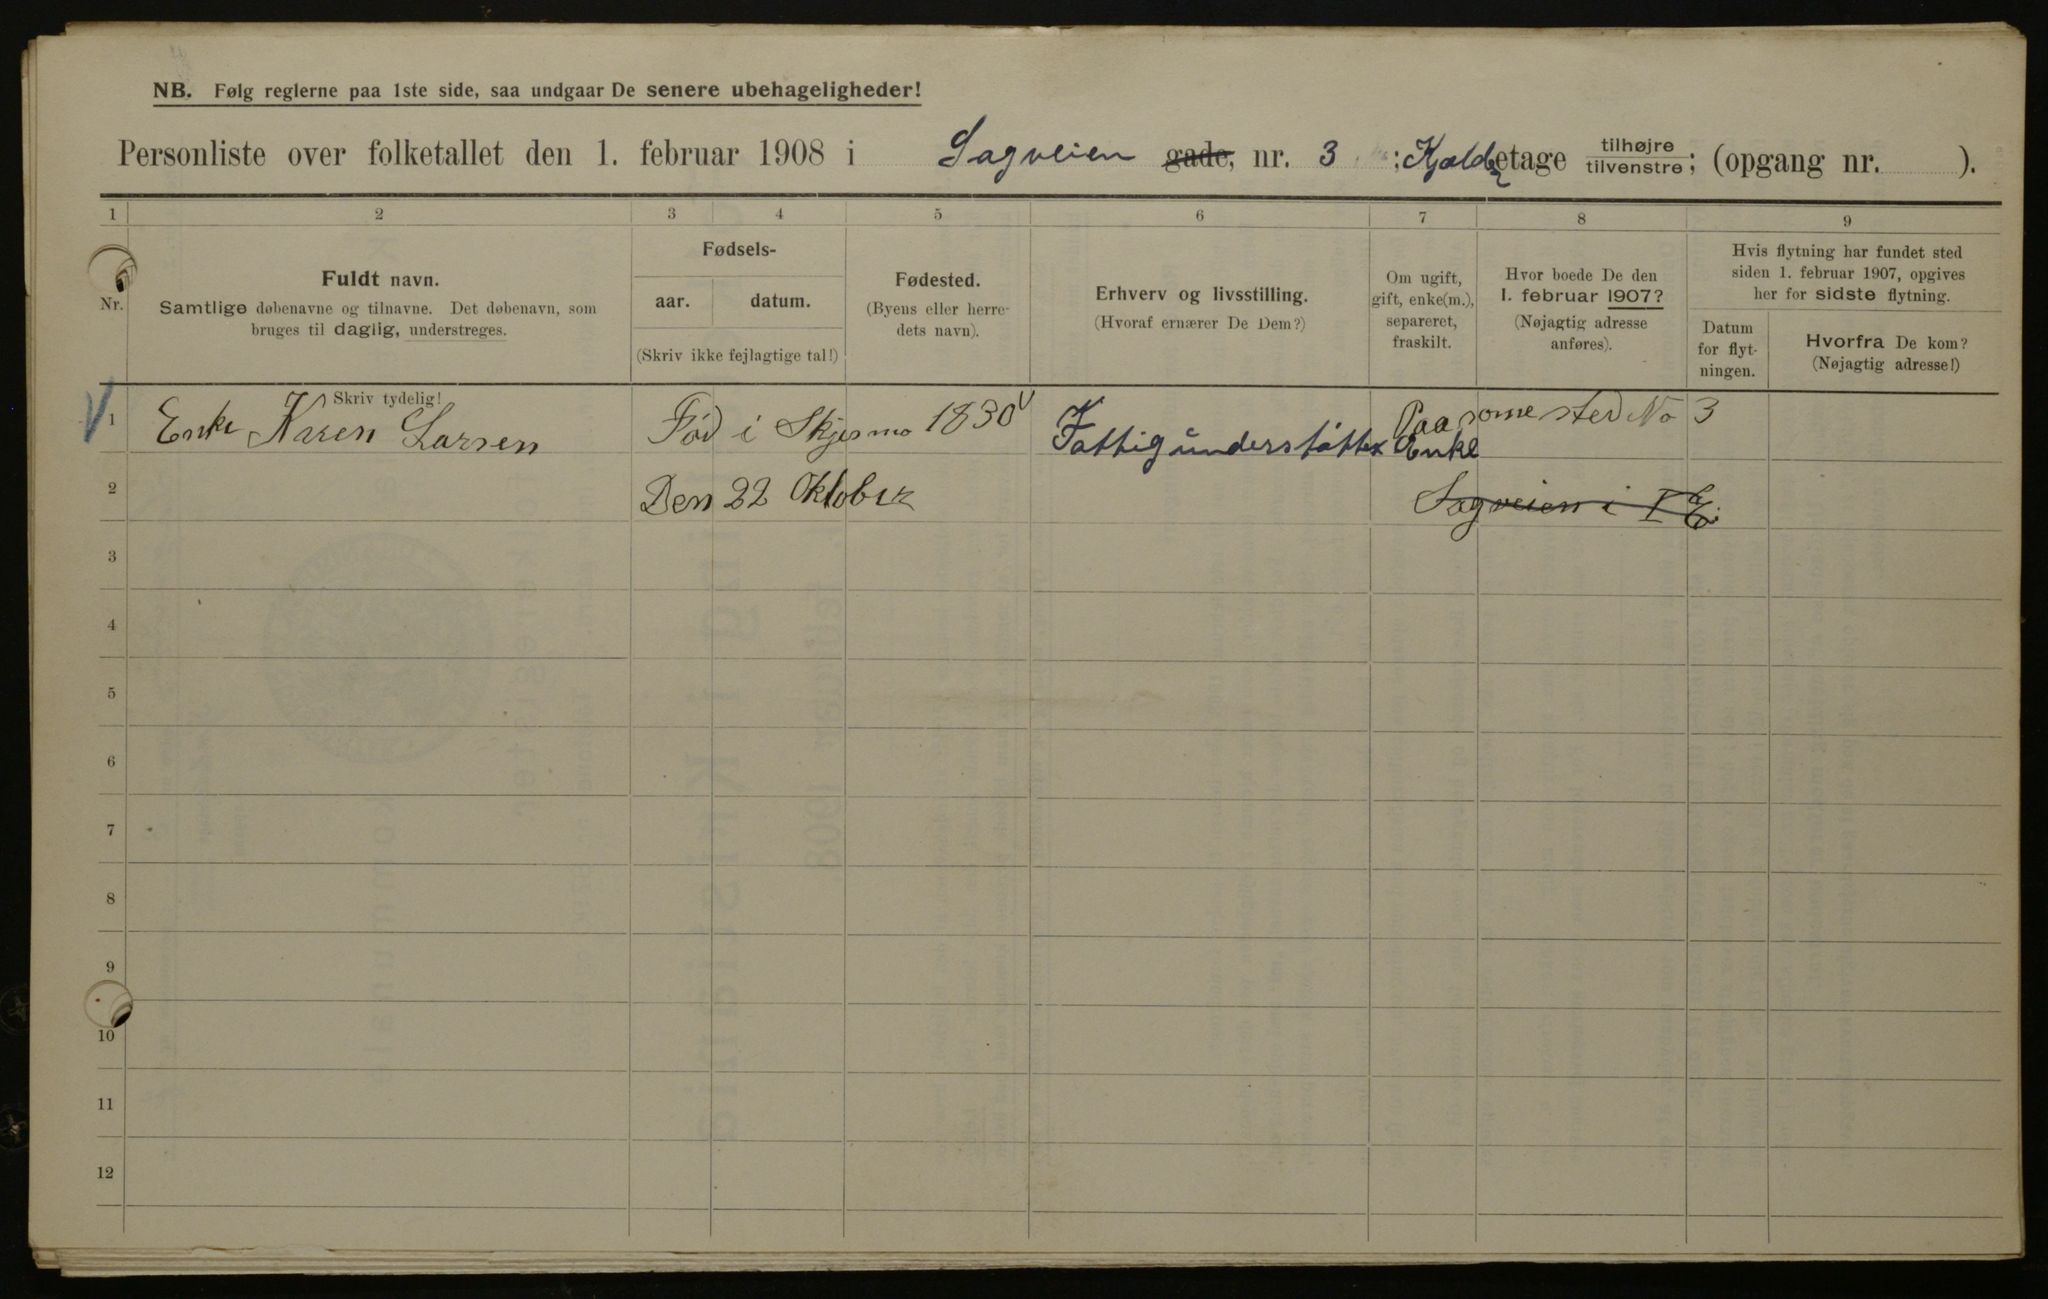 NB. Følg reglerne paa 1ste side, saa undgaar De senere ubehageligheder!
Personliste over folketallet den 1. februar 1908 i Sagveien gade, nr. 3 ; Kjeld etage tilhøjre tilvenstre; (opgang nr. ).
1 2 3 4 5 6 7 8 9
Nr.
Fuldt navn.
Samtlige døbenavne og tilnavne. Det døbenavn, som
bruges til daglig, understreges.
Fødsels-
aar. datum.
(Skriv ikke fejlagtige tal!)
Fødested.
(Byens eller herre-
dets navn).
Erhverv og livsstilling.
(Hvoraf ernærer De Dem?)
Om ugift,
gift, enke(m.),
separeret,
fraskilt.
Hvor boede De den
1. februar 1907?
(Nøjagtig adresse
anføres).
Hvis flytning har fundet sted
siden 1. februar 1907, opgives
her for sidste flytning.
Datum
for flyt-
ningen.
Hvorfra De kom?
(Nøjagtig adresse!)
Skriv tydelig!
1 Enke Karen Larsen Fød i Skjesmo 1830 Fattigunderstøttet Enke Paa some sted No 3
2 Den 22 Oktober Sagveien i I E.
3
4
5
6
7
8
9
10
11
12